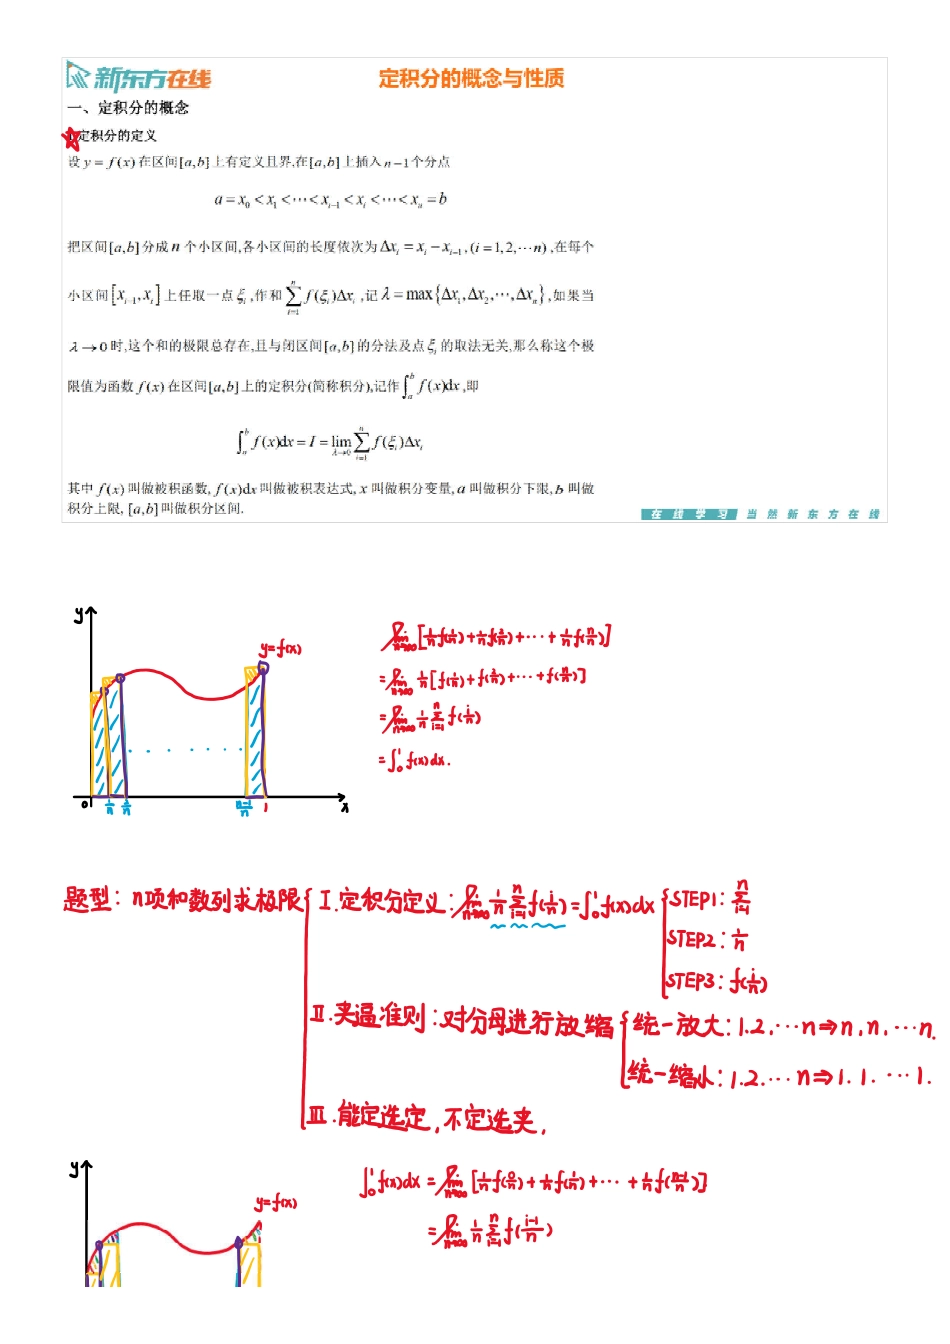 新东方在线
定积分的概念与性质
一、定积分的概念
定积分的定义
设 y = f(x) 在区间[a,b]上有定义且界,在[a,b]上插入 n−1个分点
a = x₀ < x₁ < ⋯ < xᵢ₋₁ < xᵢ < ⋯ < xₙ = b
把区间[a,b]分成 n 个小区间,各小区间的长度依次为 Δxᵢ = xᵢ − xᵢ₋₁,(i=1,2,⋯n),在每个
小区间[xᵢ₋₁,xᵢ]上任取一点 ξᵢ,作和 ∑ᵢ₌₁ⁿ f(ξᵢ)Δxᵢ,记 λ = max{Δx₁,Δx₂,⋯,Δxₙ},如果当
λ→0时,这个和的极限总存在,且与闭区间[a,b]的分法及点 ξᵢ 的取法无关,那么称这个极
限值为函数 f(x) 在区间[a,b]上的定积分(简称积分),记作 ∫ₐᵇ f(x)dx,即
∫ₐᵇ f(x)dx = I = lim_{λ→0} ∑ᵢ₌₁ⁿ f(ξᵢ)Δxᵢ
其中 f(x) 叫做被积函数, f(x)dx 叫做被积表达式, x 叫做积分变量, a 叫做积分下限, b 叫做
积分上限, [a,b]叫做积分区间.
在线学习 当然新东方在线
y
y=f(x)
0 1/n 2/n (n-1)/n 1 x
lim_{n→∞}[1/n f(1/n)+1/n f(2/n)+⋯+1/n f(n/n)]
=lim_{n→∞} 1/n[f(1/n)+f(2/n)+⋯+f(n/n)]
=lim_{n→∞} 1/n ∑ᵢ₌₁ⁿ f(i/n)
=∫₀¹ f(x)dx.
题型: n项和数列求极限
Ⅰ.定积分定义: lim_{n→∞} 1/n ∑ᵢ₌₁ⁿ f(i/n)=∫₀¹ f(x)dx
STEP1: ∑ᵢ₌₁ⁿ
STEP2: 1/n
STEP3: f(i/n)
Ⅱ.夹逼准则:对分母进行放缩
统一放大: 1.2.⋯n⇒n.n.⋯n.
统一缩小: 1.2.⋯n⇒1.1.⋯1.
Ⅲ.能定选定,不定选夹.
y
y=f(x)
∫₀¹ f(x)dx = lim_{n→∞}[1/n f(0/n)+1/n f(1/n)+⋯+1/n f((n-1)/n)]
=lim_{n→∞} 1/n ∑ᵢ₌₁ⁿ f((i-1)/n)